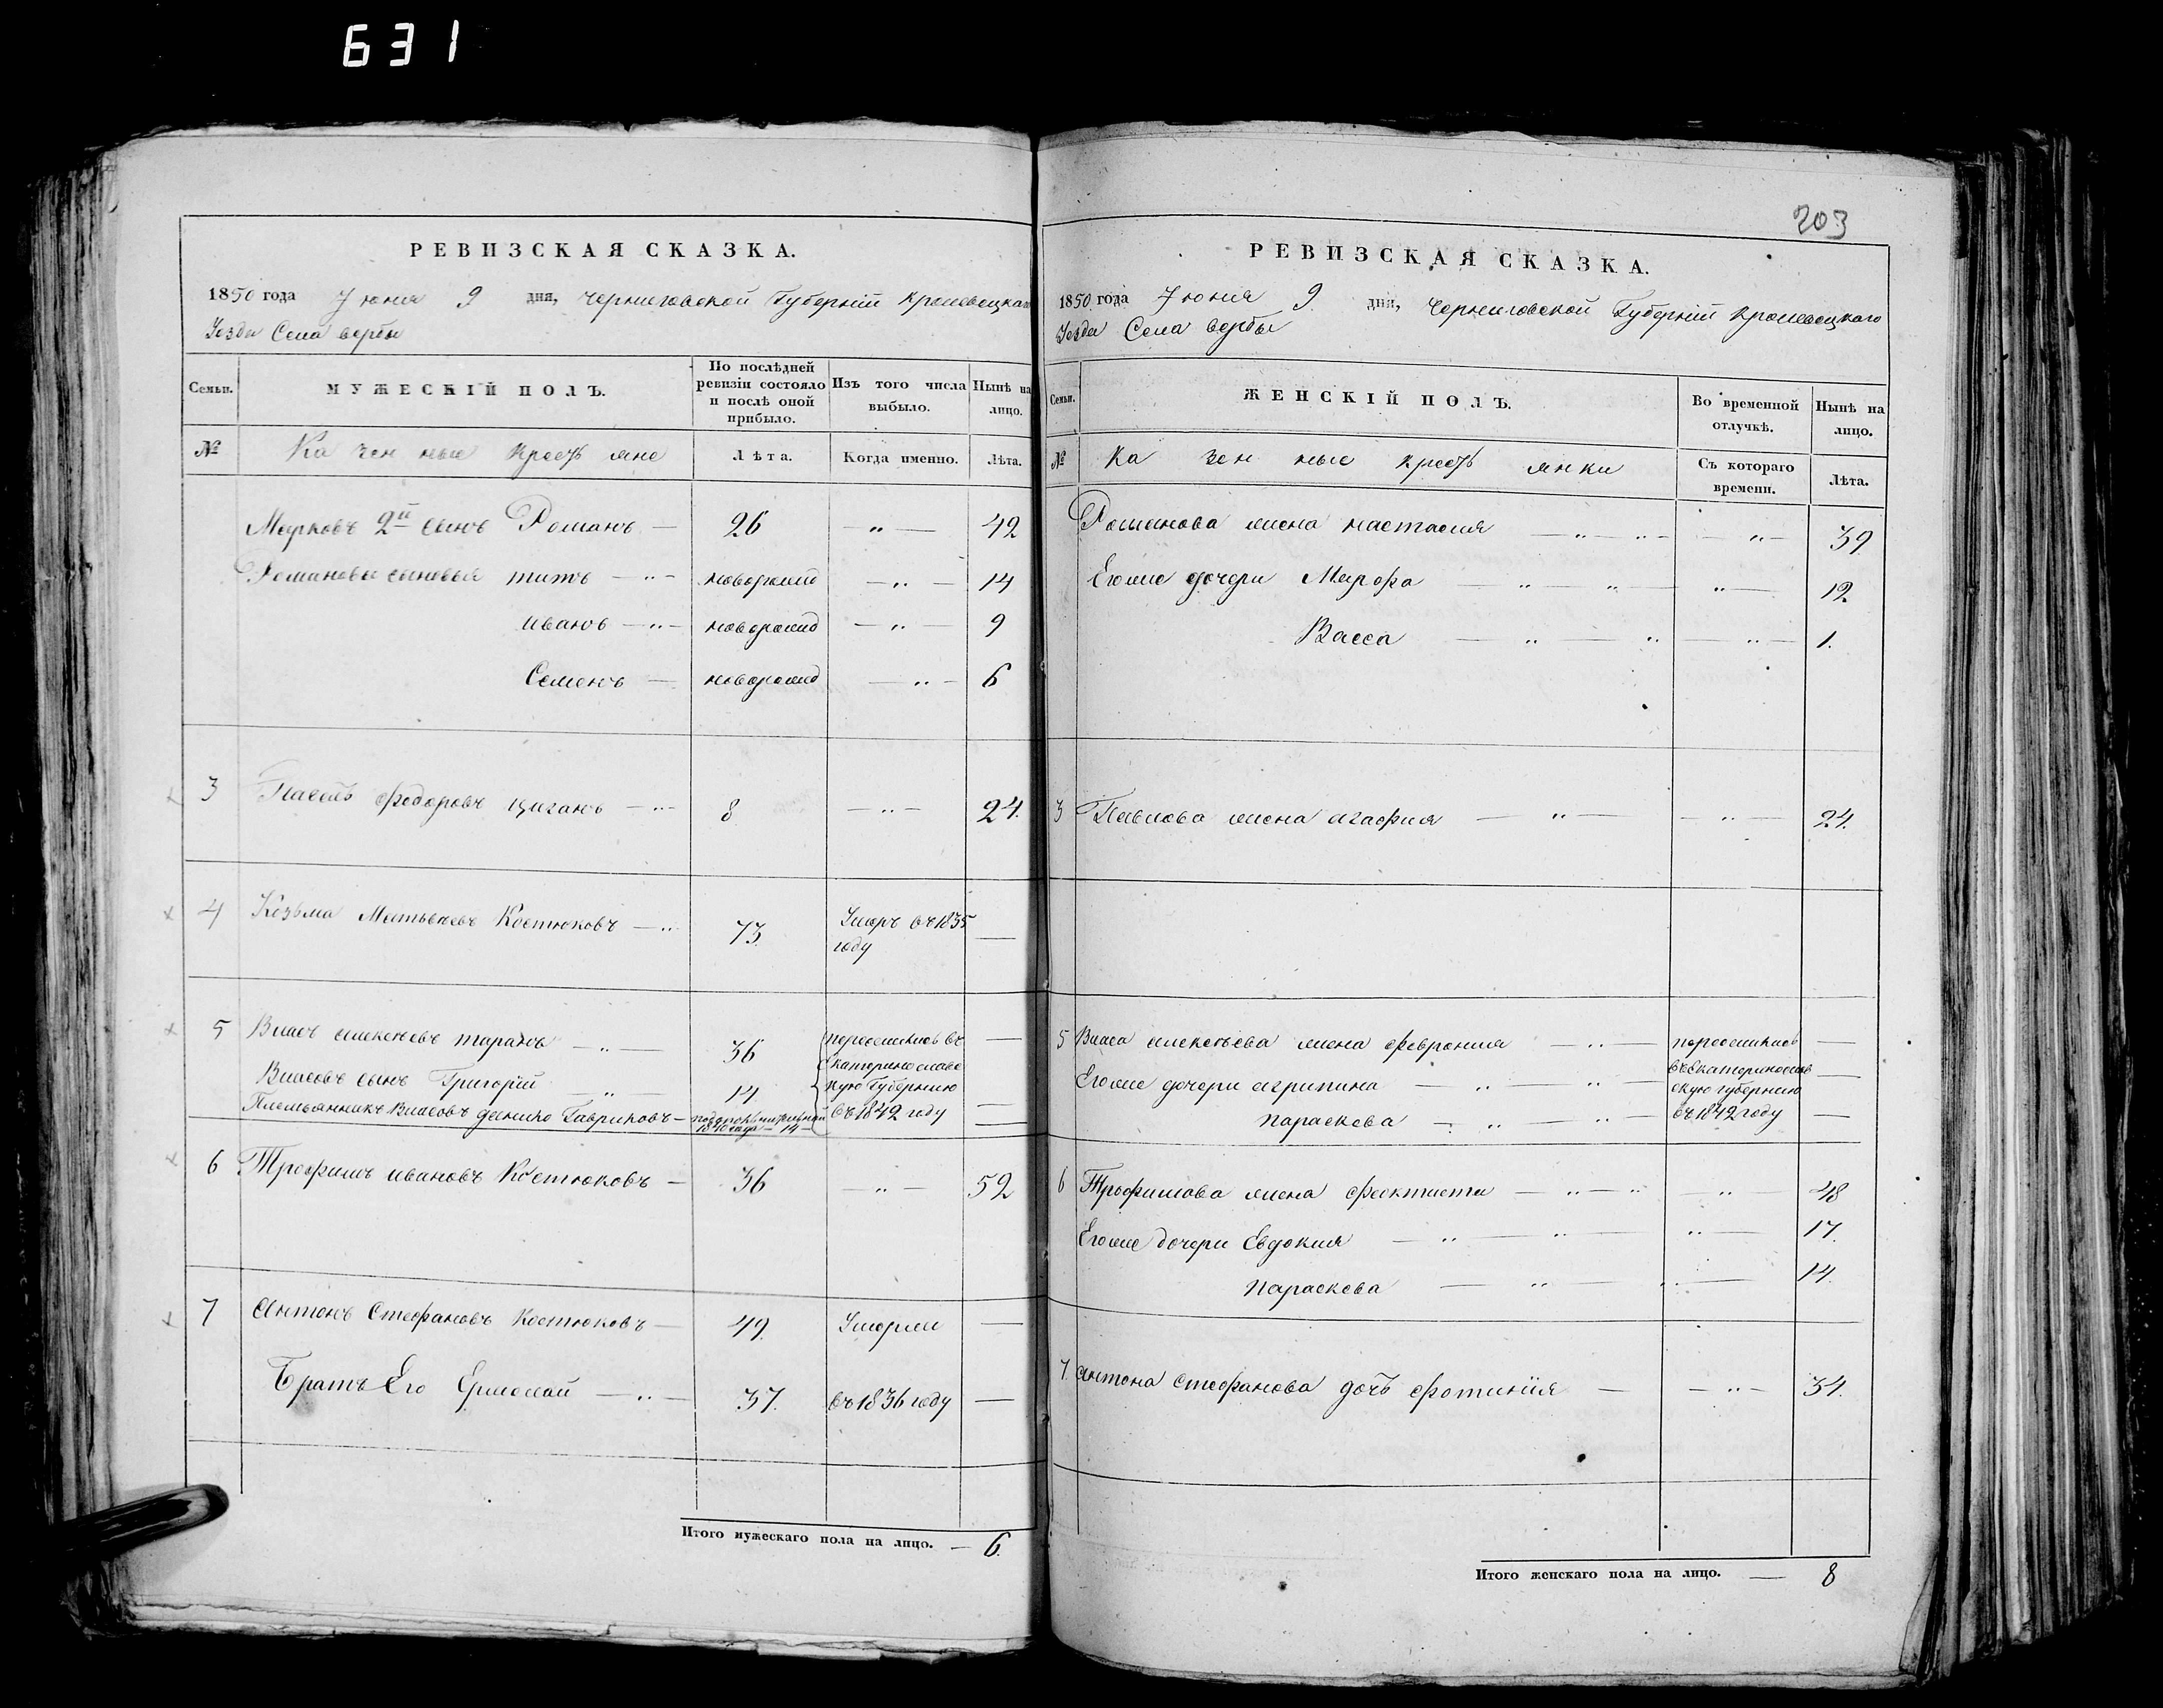 631
203
РЕВИЗСКАЯ СКАЗКА.
1850 года Июня 9 дня, Черниговской Губерніи Кролевецкаго
Уезда Села вербы
Семьи.
МУЖЕСКІЙ ПОЛЪ.
По послѣдней
ревизіи состояло
и послѣ оной
прибыло.
Изъ того числа
выбыло.
Нынѣ на
лицо.
№
Казенные крестьяне
Лѣта.
Когда именно.
Лѣта.
Марковъ 2й сынъ Романъ — 26 — „ — 42
Романовы сыновья титъ — „ — новорожд — „ — 14
иванъ — „ — новорожд — „ — 9
Семенъ — новорожд — „ — 6
3 Павелъ федоровъ циганъ — „ — 8 — „ — 24.
4 Козьма Матвеевъ Костюковъ — „ 73. Умеръ въ 1835 —
году
5 Власъ алексеевъ таранъ — „ — 36 переселились въ —
Екатеринослав
Власовъ сынъ Григорій „ 14 скую Губернию
Племьянникъ Власовъ данило Гавриковъ — 14 — въ 1842 году —
1840 года
6 Трофимъ ивановъ Костюковъ — 36 — „ — 52
7 Антонъ Стефановъ Костюковъ — 49. Умерли —
Братъ Его Ермолай — „ — 37. въ 1836 году —
Итого мужескаго пола на лицо. — 6.
РЕВИЗСКАЯ СКАЗКА.
1850 года Июня 9. дня, Черниговской Губерніи Кролевецкаго
Уезда Села вербы
Семьи.
ЖЕНСКІЙ ПОЛЪ.
Во временной
отлучкѣ.
Нынѣ на
лицо.
№
Казенные крестьянки
Съ котораго
времени.
Лѣта.
Романова жена настасия — „ — „ — — „ — 39
Егоже дочери Марфа „ „ — „ — 12.
Васса — „ — „ — „ — 1.
3 Павлова жена агафия — „ — — „ — 24.
5 Власа алексеева жена феврония — „ — переселились —
въ Екатеринослав
Егоже дочери агрипина — „ — „ — скую губернию —
параскева — „ — „ — въ 1842 году —
6 Трофимова жена феоктиста — „ — „ „ — 48
Егоже дочери Евдокия — „ — „ — „ — 17.
параскева — „ — „ — 14.
7. антона стефанова дочъ фотинія — — „ — 34.
Итого женскаго пола на лицо. — 8